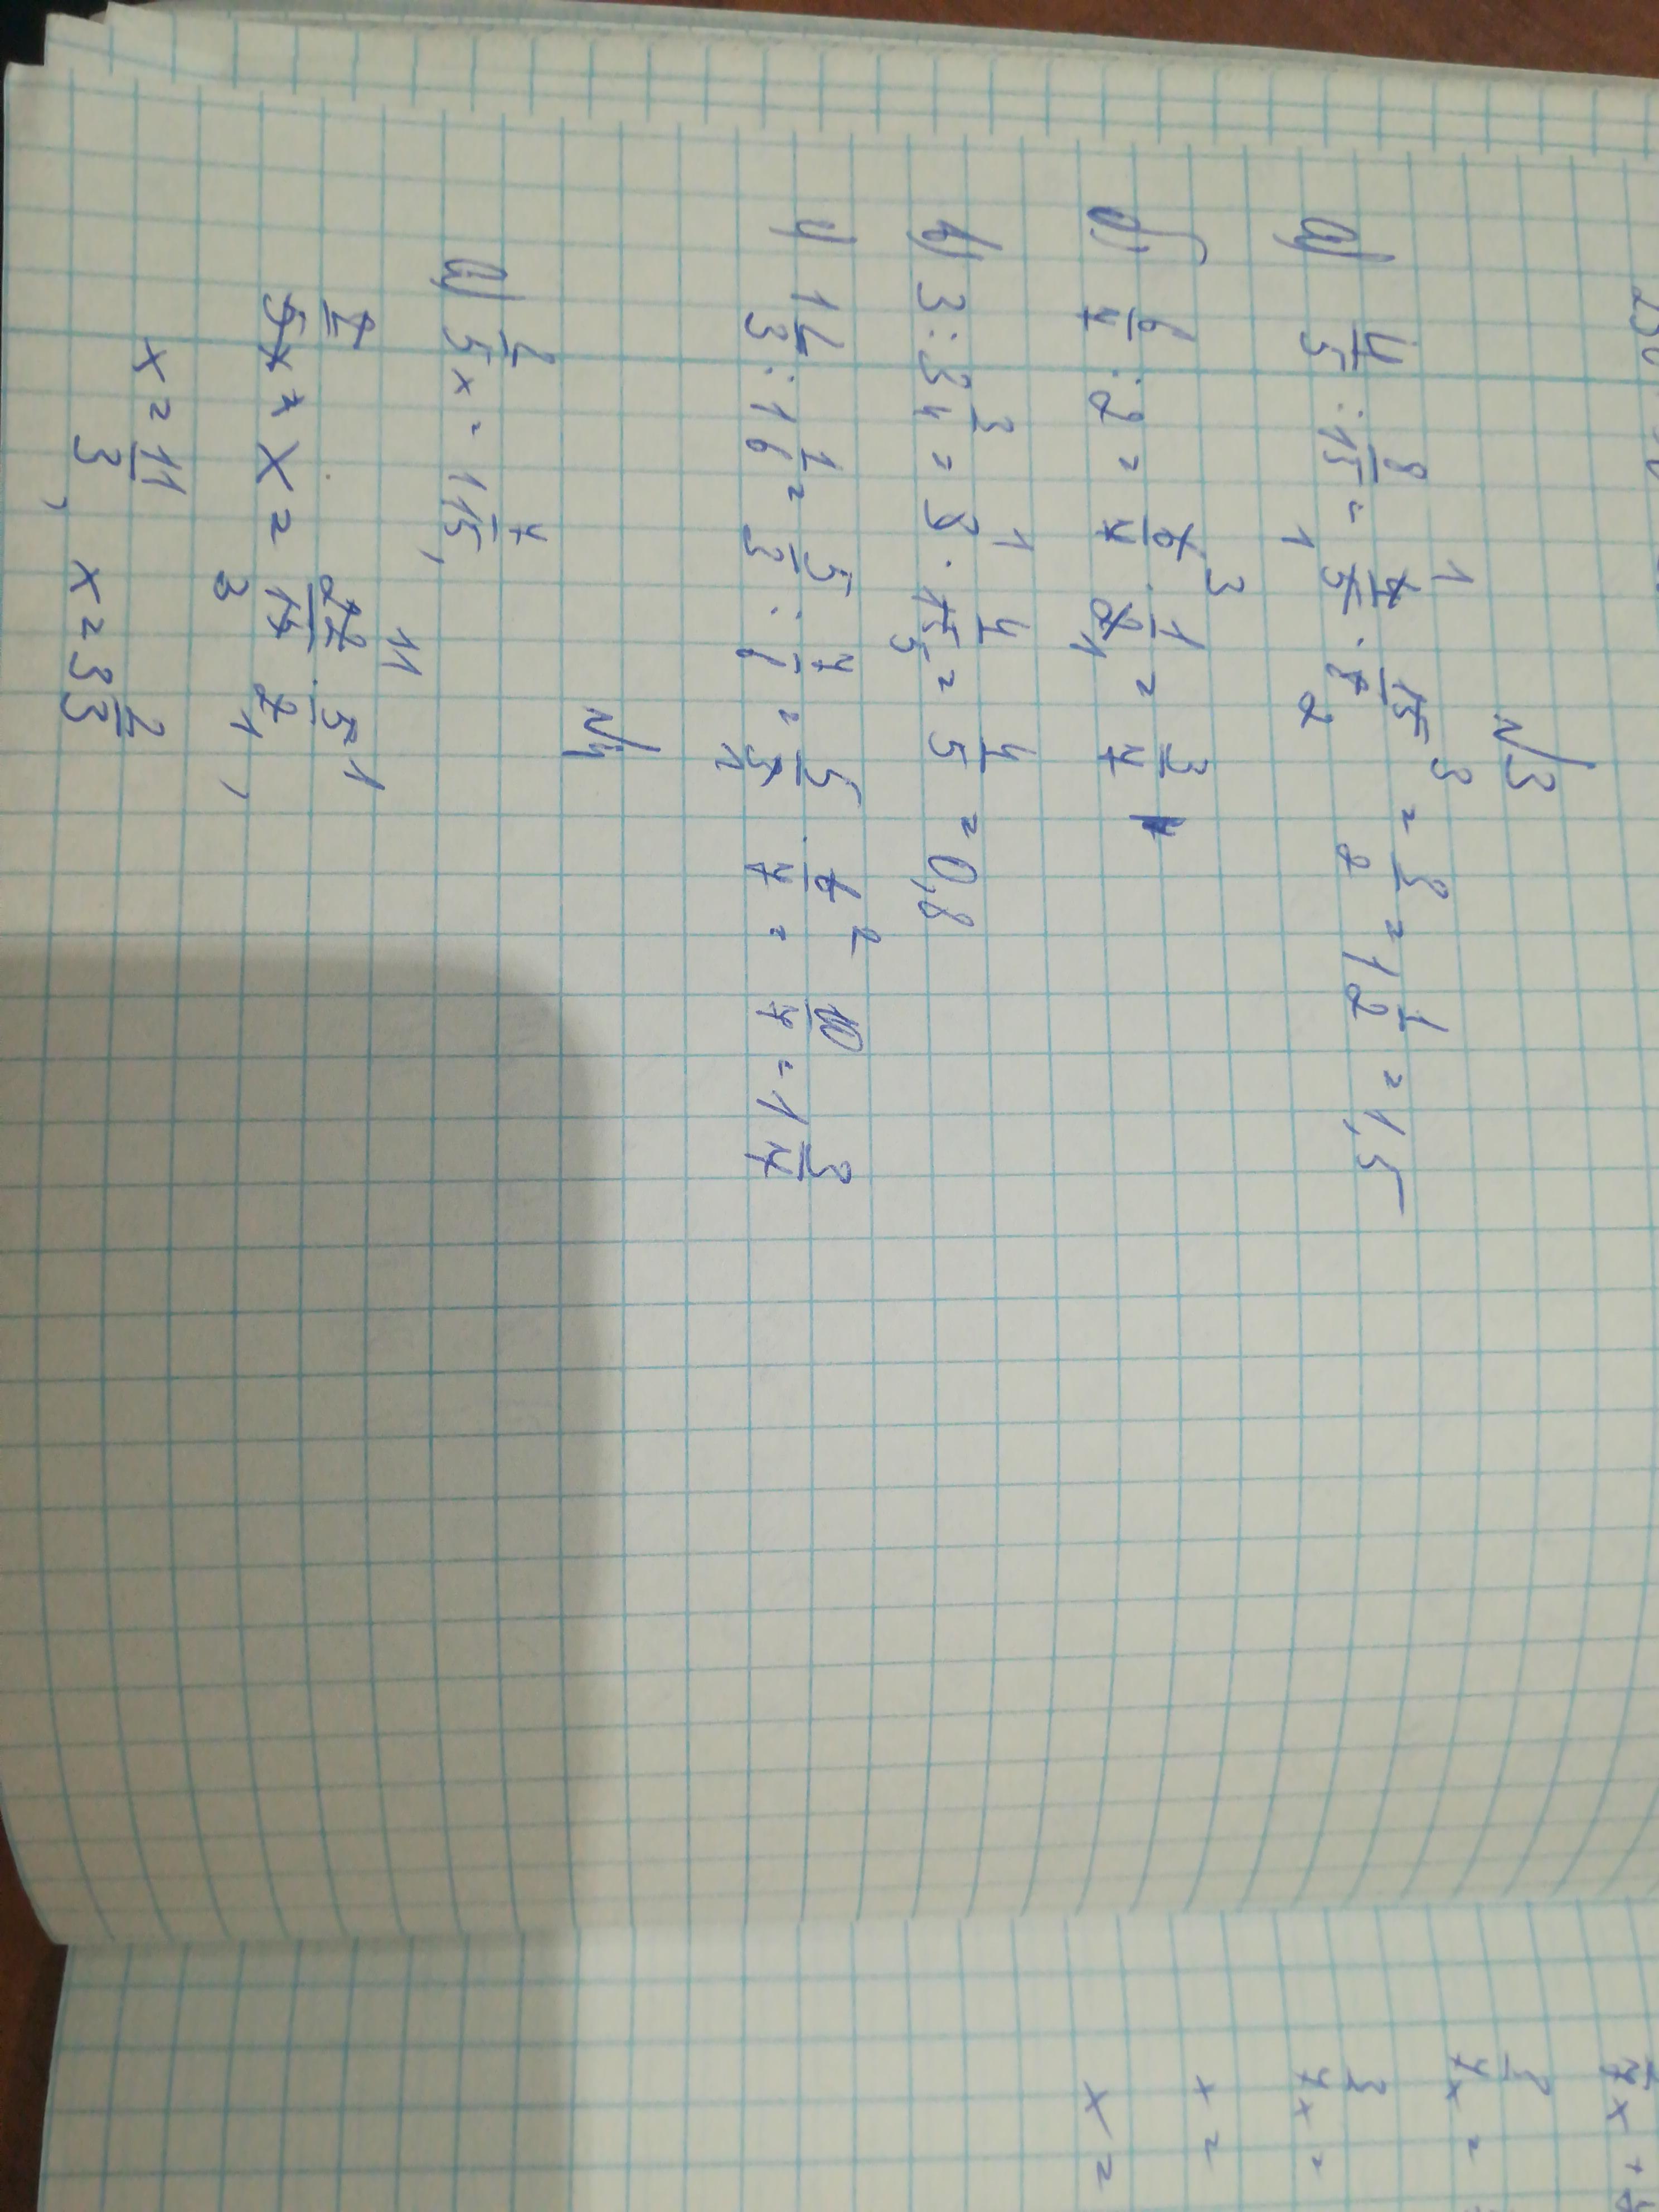 N3
а) 4/5 : 8/15 = 4/5 · 15/8 = 3/2 = 1 1/2 = 1,5
б) 6/7 : 2 = 6/7 · 1/2 = 3/7
в) 3 : 3 3/4 = 3 · 4/15 = 4/5 = 0,8
г) 1 2/3 : 1 1/6 = 5/3 : 7/6 = 5/3 · 6/7 = 10/7 = 1 3/7
N4
а) 2/5 x = 1 7/15,
x = 22/15 · 5/2,
x = 11/3, x = 3 2/3
x =
x =